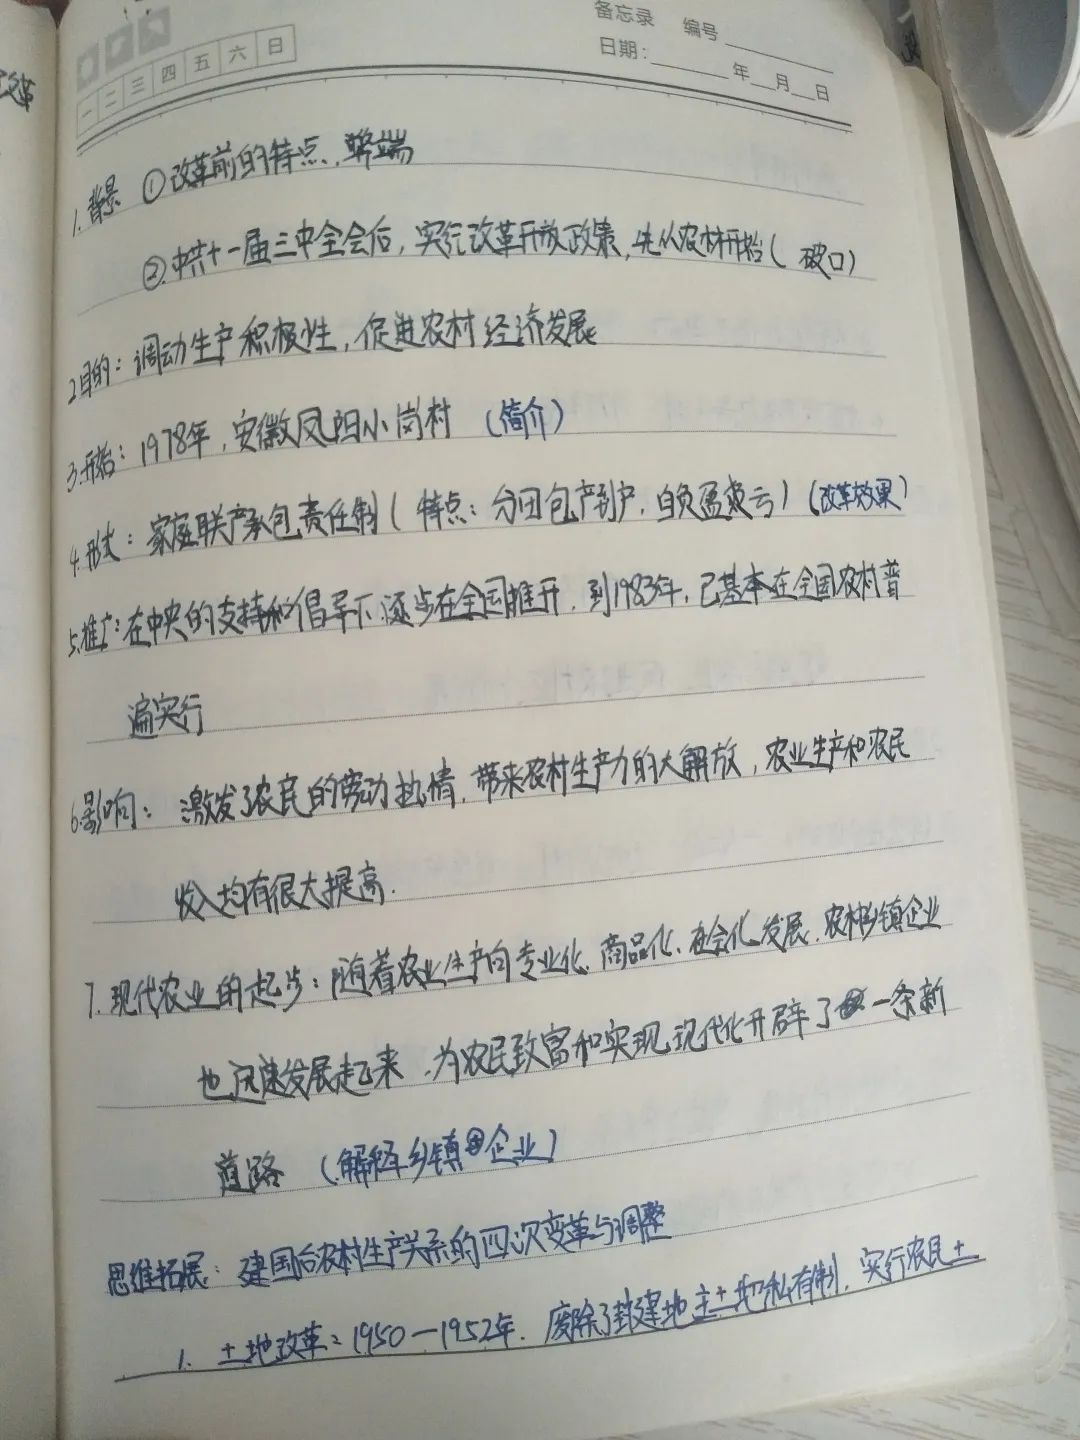 备忘录 编号
日期: 年 月 日
一 二 三 四 五 六 日
改革
1.背景 ①改革前的特点、弊端
②.中共十一届三中全会后，实行改革开放政策，先从农村开始( 破口)
2目的：调动生产积极性，促进农村经济发展
3.开始：1978年，安徽凤阳小岗村 (简介)
4.形式：家庭联产承包责任制( 特点：分田包产到户，自负盈亏)(改革效果)
5.推广：在中央的支持和倡导下.逐步在全国推开，到1983年，已基本在全国农村普
遍实行
6.影响： 激发了农民的劳动热情，带来农村生产力的大解放，农业生产和农民
收入均有很大提高.
7.现代农业的起步：随着农业生产向专业化、商品化、社会化发展，农村乡镇企业
也迅速发展起来，为农民致富和实现现代化开辟了一条新
道路 (解释乡镇企业)
思维拓展：建国后农村生产关系的四次变革与调整
1. 土地改革：1950—1952年，废除了封建地主土地私有制，实行农民土